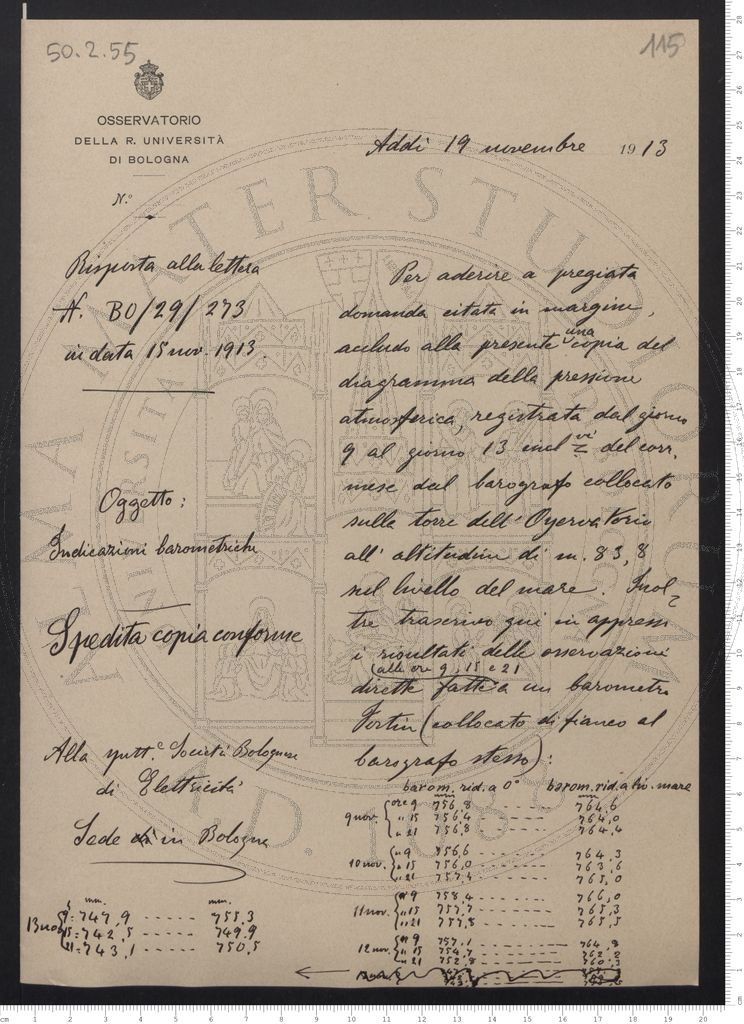 50.2.55
115
OSSERVATORIO
DELLA R. UNIVERSITÀ
DI BOLOGNA
N.º
Addì 19 novembre 1913
Risposta alla lettera
N. BO/29/273
in data 15 nov. 1913.
Oggetto:
Indicazioni barometriche
Spedita copia conforme
Alla spett.e Società Bolognese
di Elettricità
Sede in Bologna
Per aderire a pregiata
domanda citata in margine,
accludo alla presente una copia del
diagramma della pressione
atmosferica, registrata dal giorno
9 al giorno 13 incl. del corr.
mese dal barografo collocato
sulla torre dell'Osservatorio
all'altitudine di m. 83,8
sul livello del mare. Inol=
tre trascrivo qui in appresso
i risultati delle osservazioni
(alle ore 9, 15 e 21
dirette fatte a un barometro
Fortin (collocato di fianco al
barografo stesso):
barom. rid. a 0° barom. rid. a liv. mare
mm mm
9 nov. ore 9 756,8 ----- 764,6
" 15 756,4 ----- 764,0
" 21 756,8 ----- 764,4
10 nov. " 9 756,6 ----- 764,3
" 15 756,0 ----- 763,6
" 21 757,4 ----- 765,0
11 nov. " 9 758,4 ----- 766,0
" 15 757,7 ----- 765,3
" 21 757,8 ----- 765,5
12 nov. " 9 757,1 ----- 764,8
" 15 754,7 ----- 762,2
" 21 752,8 ----- 760,3
mm. mm.
13 nov. 9: 747,9 ----- 755,3
15: 742,5 ----- 749,9
21: 743,1 ----- 750,5
ALMA MATER STUDIORUM
A.D. 1088